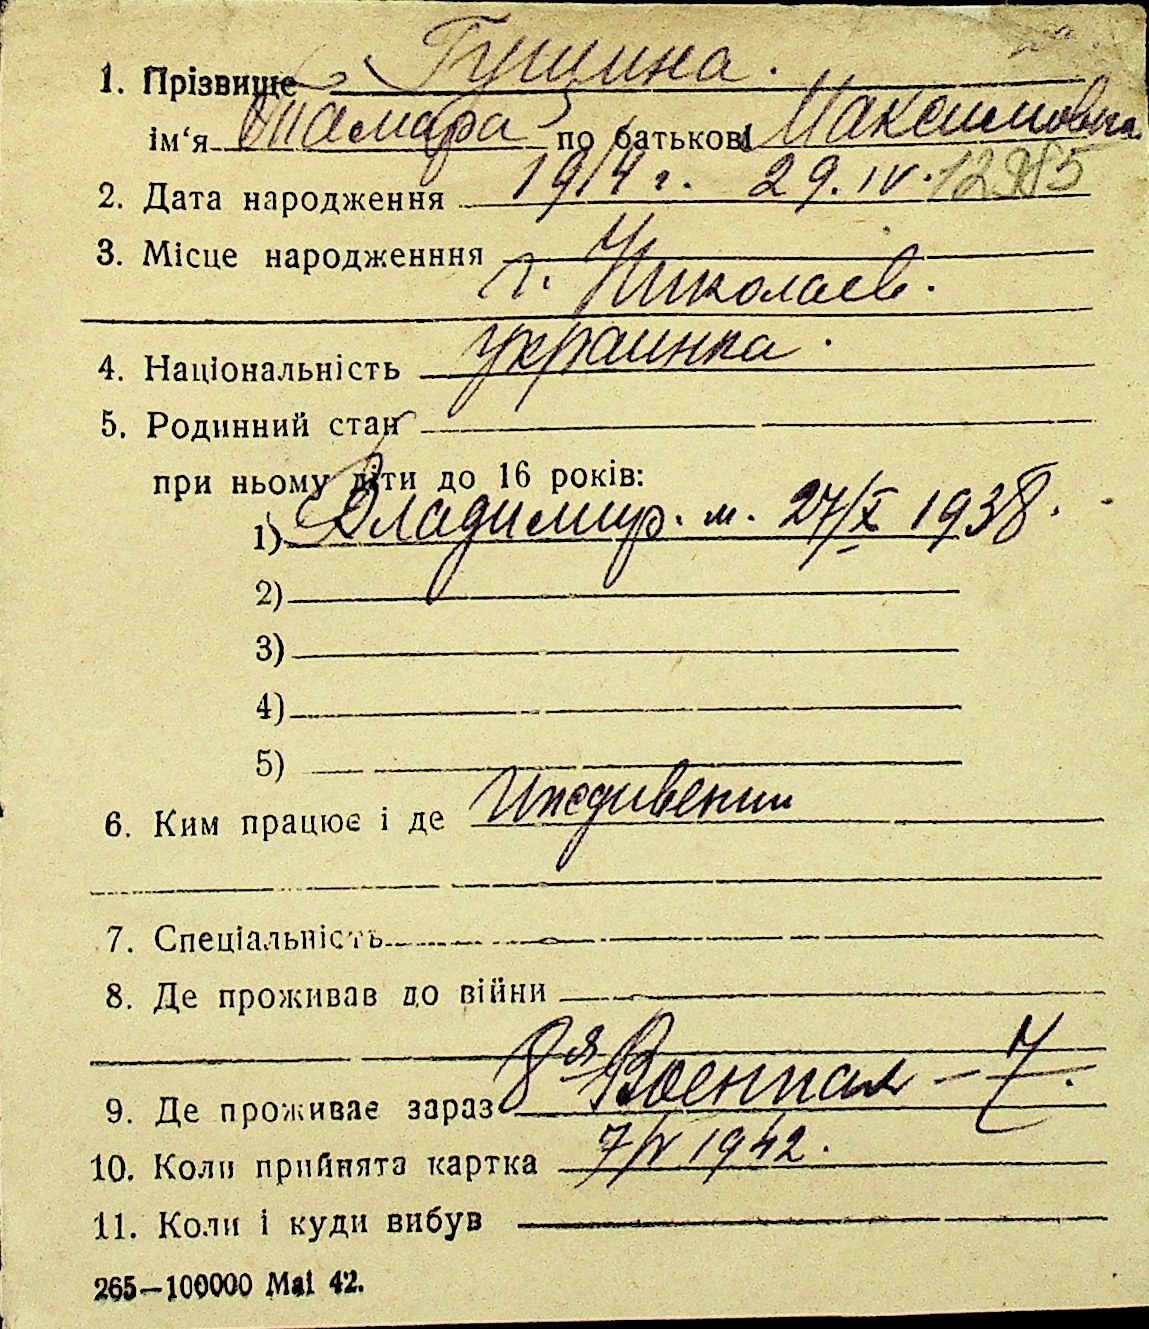 1. Прізвище Гущина.
ім‘я Тамара по батькові Максимовна
2. Дата народження 1914 г. 29. IV.
3. Місце народженння
г. Николаев.
4. Національність украинка.
5. Родинний стан
при ньому діти до 16 років:
1) Владимир. м. 27/X 1938.
2)
3)
4)
5)
6. Ким працює і де Иждивении
7. Спеціальність
8. Де проживав до війни
9. Де проживає зараз 8я Военная – 7.
10. Коли прийнята картка 7/V 1942.
11. Коли і куди вибув
265—100000 Mai 42.